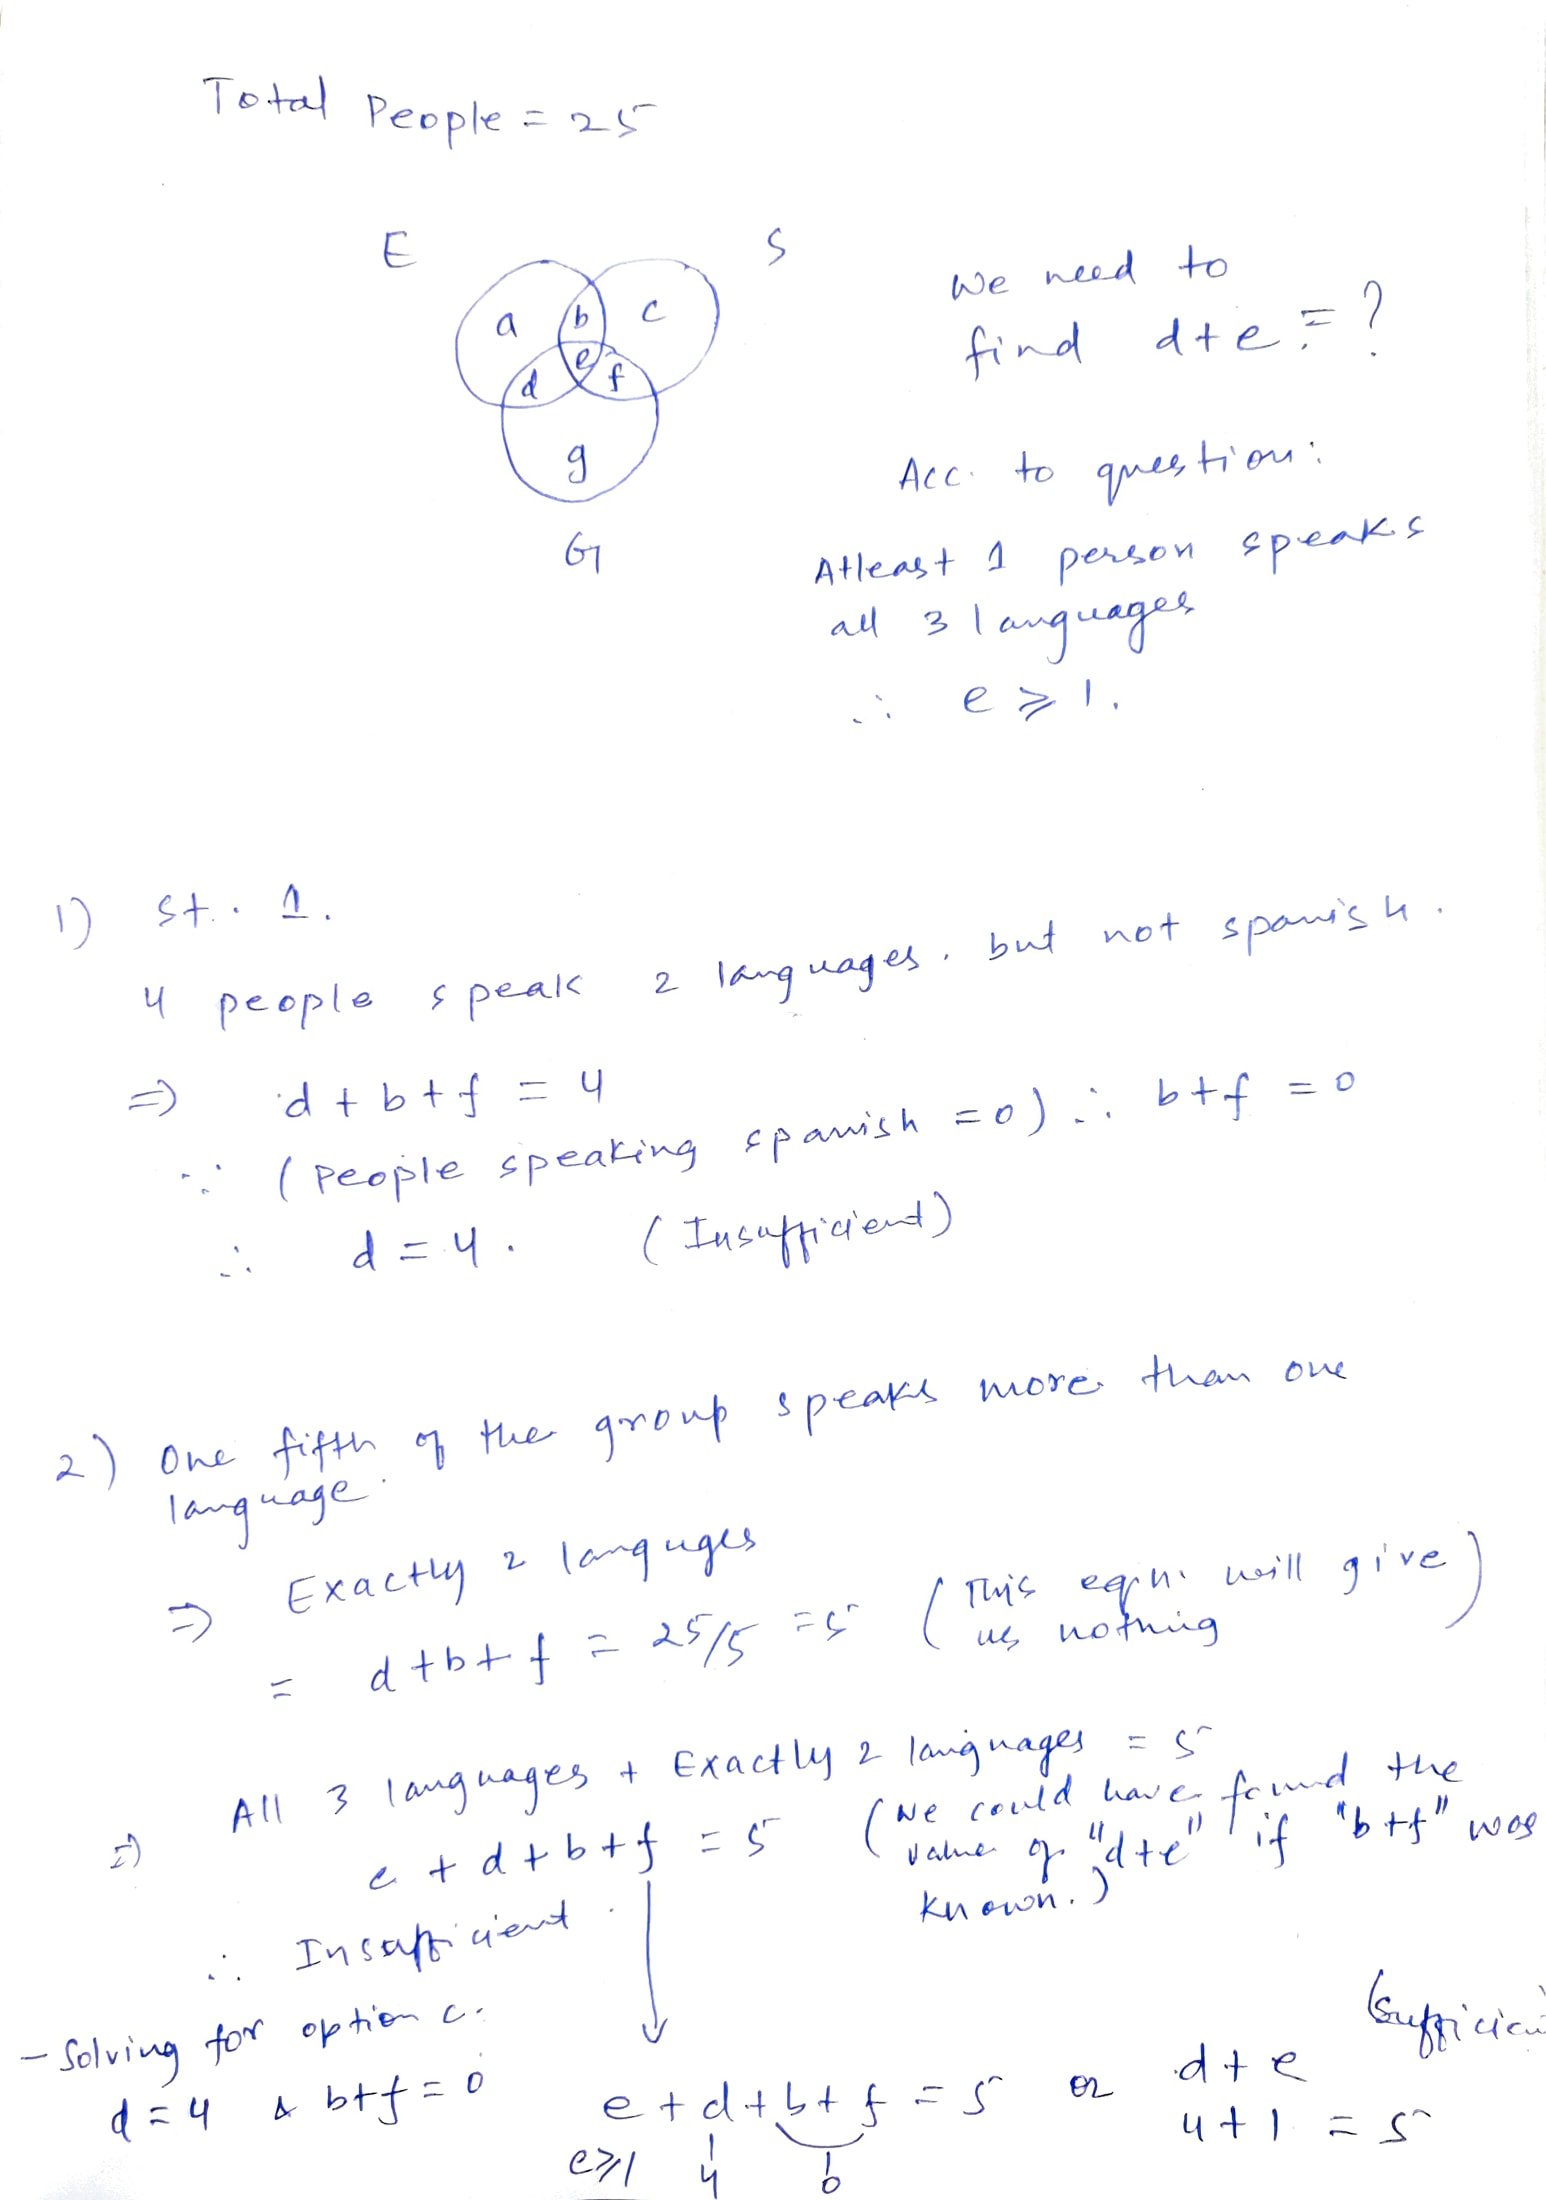 Total People = 25
E
S
a
b
c
d
e
f
g
G
We need to
find d+e = ?
Acc. to question:
Atleast 1 person speaks
all 3 languages
∴ e ⩾ 1.
1) St. 1.
4 people speak 2 languages, but not spanish.
⇒ d + b + f = 4
∵ (People speaking spanish = 0) ∴ b+f = 0
∴ d = 4. (Insufficient)
2) One fifth of the group speaks more than one
language.
⇒ Exactly 2 languges
= d+b+f = 25/5 = 5 (This eqn. will give
us nothing)
⇒ All 3 languages + Exactly 2 languages = 5
e + d + b + f = 5 (we could have found the
value of "d+e" if "b+f" was
known.)
∴ Insufficient
- Solving for option c.
d = 4 & b+f = 0
e + d + b + f = 5 or d + e
e⩾1 4 0
4 + 1 = 5